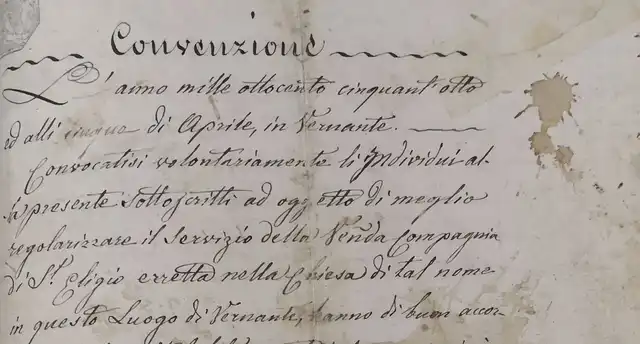 Convenzione
L'anno mille ottocento cinquant'otto
ed alli cinque di Aprile, in Vernante.
Convocatisi volontariamente li Individui al
presente sottoscritti ad oggetto di meglio
regolarizzare il servizio della Venda Compagnia
di St. Eligio erretta nella Chiesa di tal nome
in questo Luogo di Vernante, hanno di buon accor-